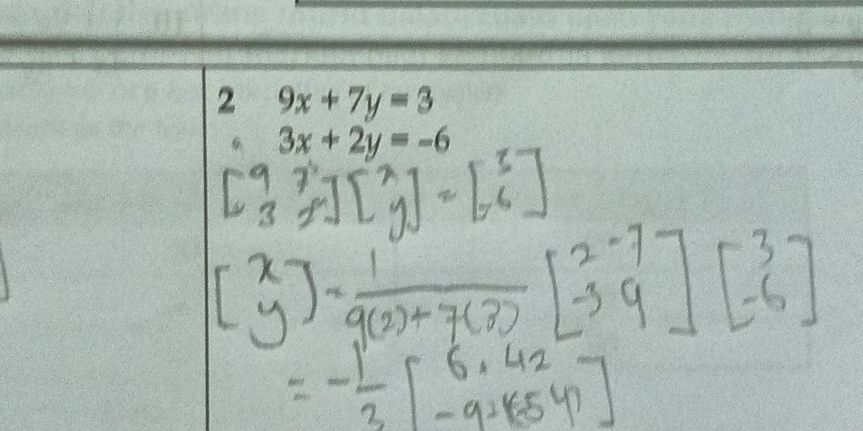 2 9x + 7y = 3
3x + 2y = -6
[9 7 3 2] [x y] = [3 -6]
[x y] = 1 / 9(2) + 7(3) [2 -7 -3 9] [3 -6]
= -1/3 [6 + 42 -9 + (-54)]